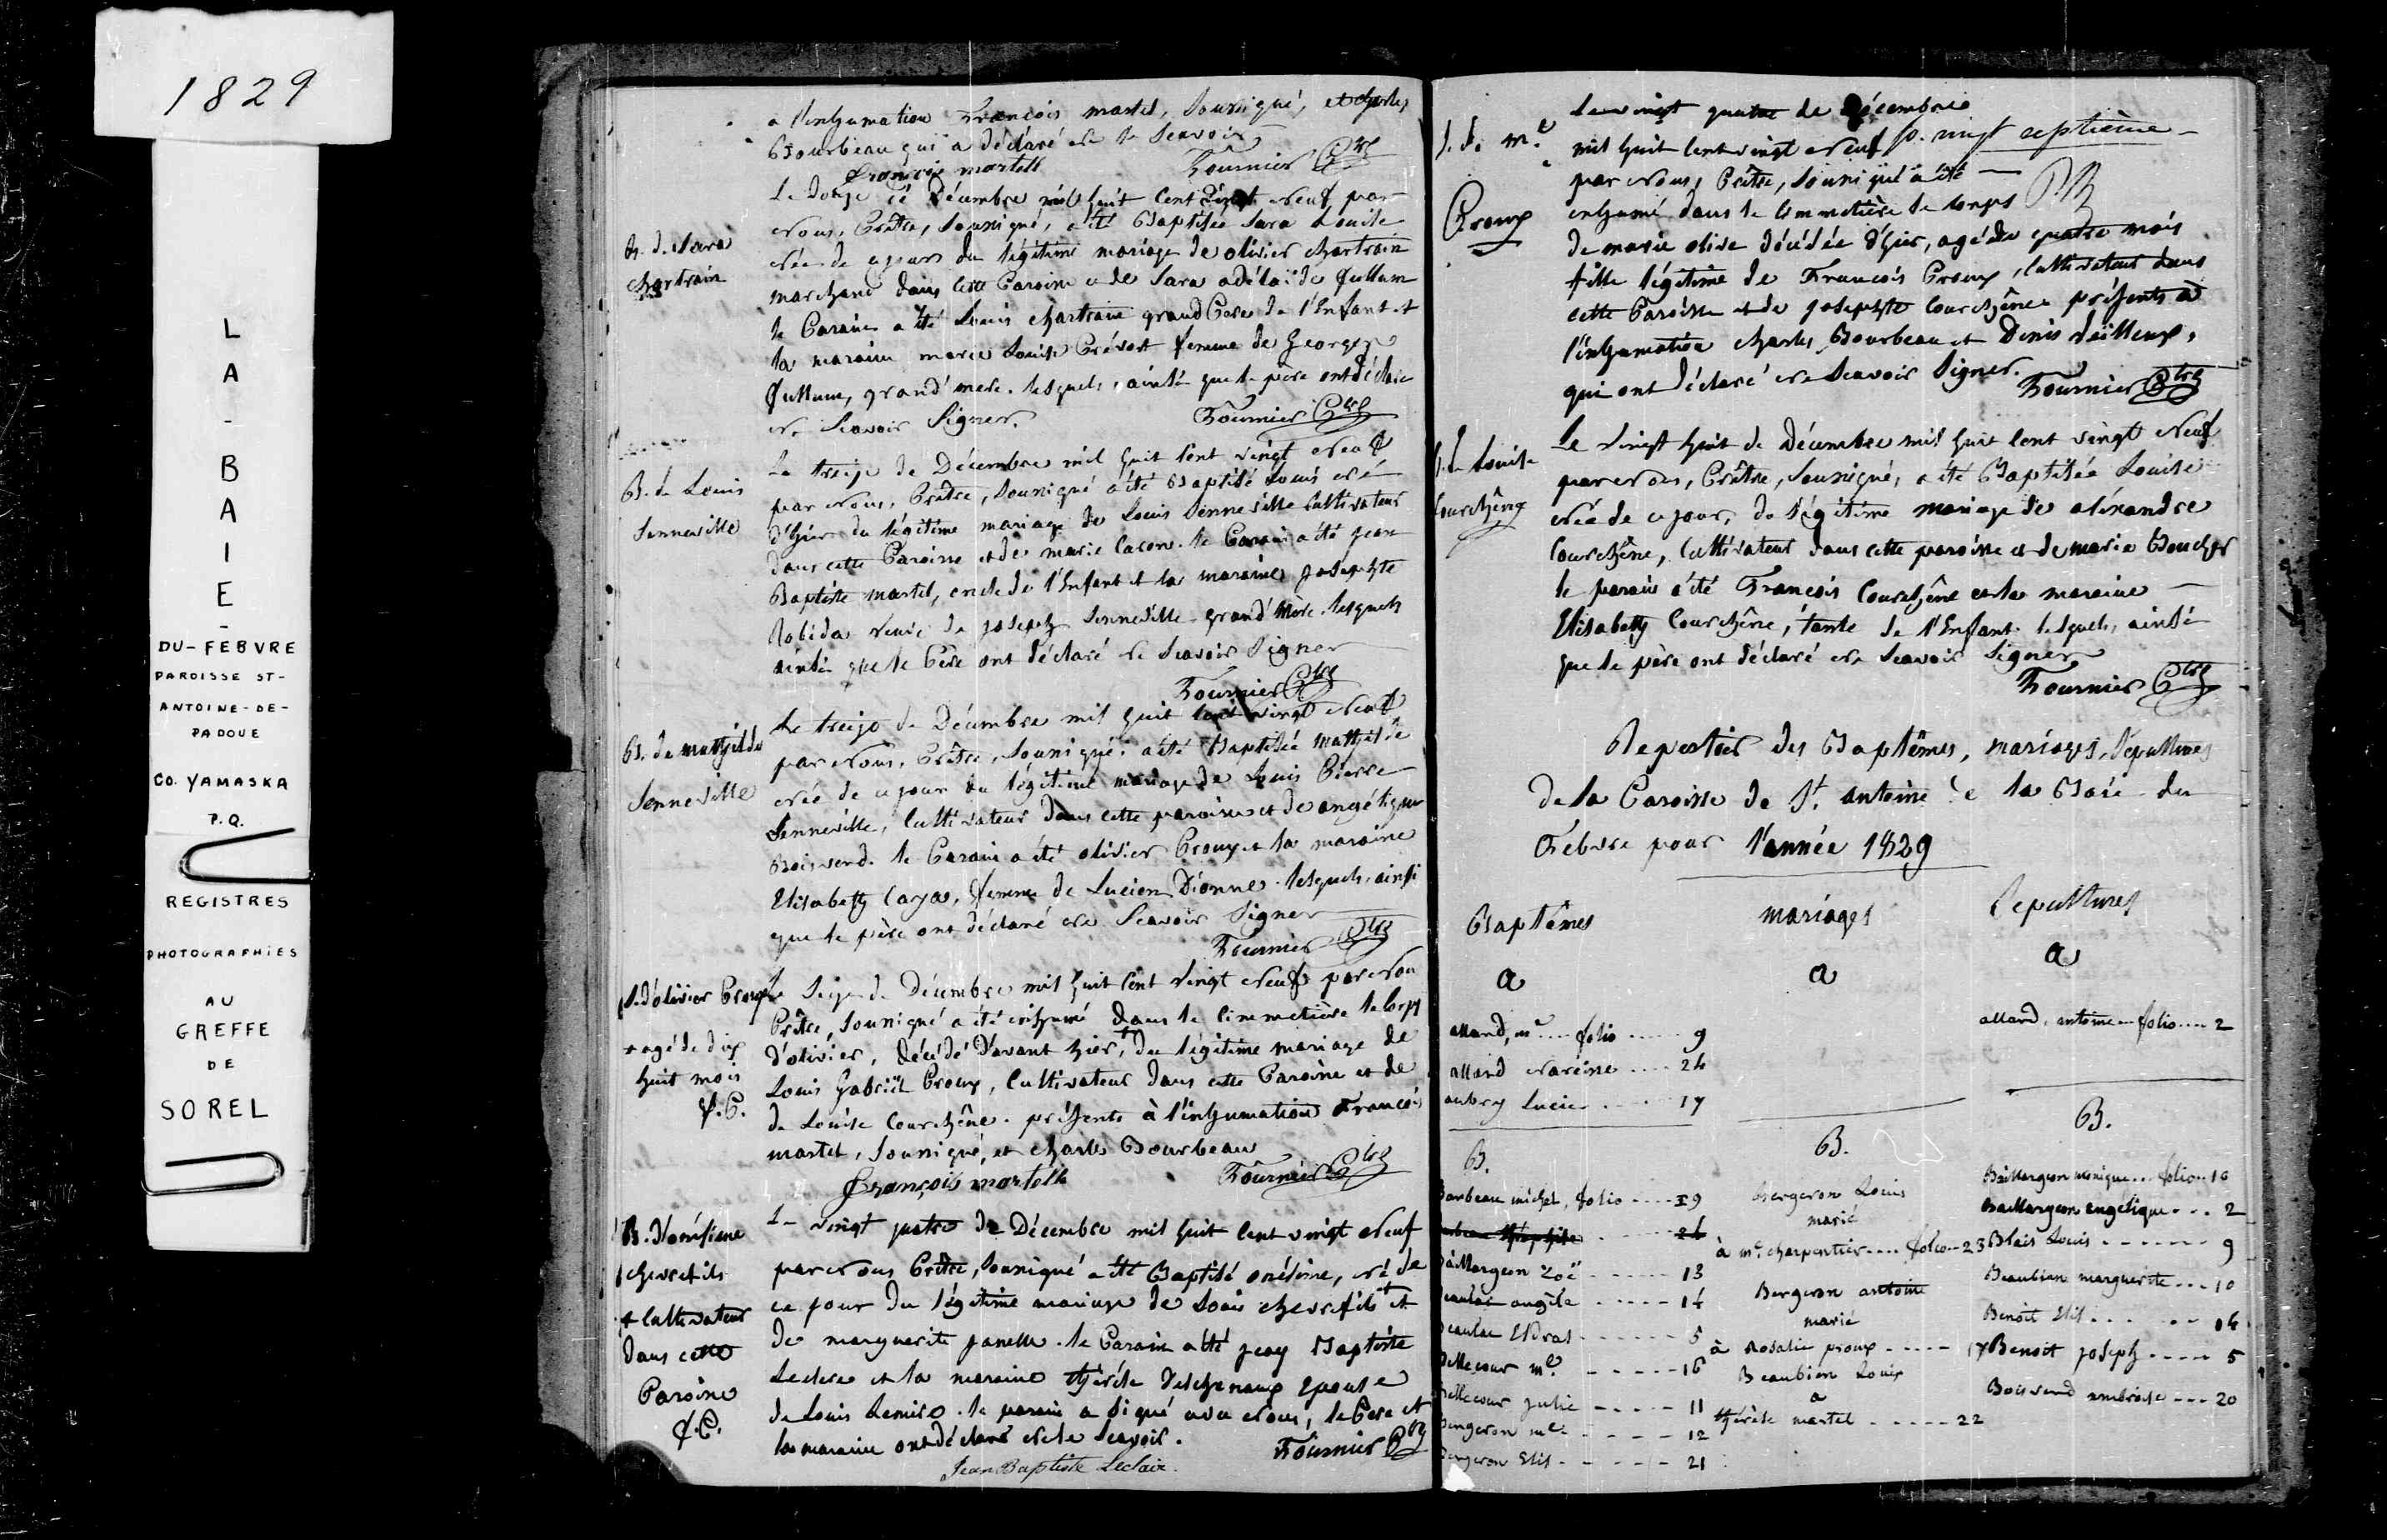 1829
LA-BAIE-
DU-FEBVRE
PAROISSE ST-
ANTOINE-DE-
PADOUE
CO. YAMASKA
P.Q.
REGISTRES
PHOTOGRAPHIÉS
AU
GREFFE
DE
SOREL
a l'inhumation François martel, soussigné, et charles
Bourbeau qui a déclaré ne le scavoir
François martell Fournier Ptre
B. de Sara
chartrain
Le douze de Décembre mil huit cent vingt neuf par
nous, Prêtre, soussigné, a été Baptisée Sara Louise
née de ce jour du légitime mariage de olivier chartrain
marchand dans cette Paroisse et de Sara adélaïde
le Parain a été Louis chartrain grand Père de l'Enfant et
la maraine marie Louise Prévost femme de Georges
grand'mere. lesquels, ainsi que le père ont déclaré
ne scavoir signer. Fournier Ptre
B. de Louis
Senneville
Le treize de Décembre mil huit cent vingt neuf
par nous, Prêtre, soussigné a été Baptisé Louis né
d'hier du légitime mariage de Louis Senneville Cultivateur
dans cette Paroisse et de marie le Parain a été jean
Baptiste martel, oncle de l'Enfant et la maraine josephte
Robida veuve de joseph Senneville grand'mère lesquels
ainsi que le Père ont déclaré ne scavoir signer
Fournier Ptre
B. de mathilde
Senneville
Le treize de Décembre mil huit cent vingt neuf
par nous, Prêtre, soussigné a été Baptisée mathilde
née de ce jour du légitime mariage de Louis Pierre
Senneville, Cultivateur dans cette paroisse et de angélique
Boisverd. le Parain a été olivier Proux et la maraine
Elisabeth femme de Lucien Dionne lesquels, ainsi
que le père ont déclaré ne scavoir signer
Fournier Ptre
S. d'olivier Proux
+ agé de dix
huit mois
f.P.
Le seize de Décembre mil huit cent vingt neuf par nous
Prêtre, soussigné a été inhumé dans le cimmetière le corps
d'olivier, décédé d'avant hier, + du légitime mariage de
Louis Gabriel Proux, Cultivateur dans cette Paroisse et de
de Louise Courchêne. présents à l'inhumation François
martel, soussigné, et charles Bourbeau
François martell Fournier Ptre
B. d'onésime
chevrefils
+ Cultivateur
dans cette
Paroisse
f.P.
Le vingt quatre de Décembre mil huit cent vingt neuf
par nous Prêtre, soussigné a été Baptisé onésime, né de
ce jour du légitime mariage de Louis chevrefils + et
de marguerite le Parain a été jean Baptiste
Leclerc et la maraine thérèse Deschenaux Epouse
de Louis Lemire. le parain a signé avec nous, le Père et
la maraine ont déclaré ne le scavoir.
Jean Baptiste Leclair Fournier Ptre
S. de m.e
Proux
Le vingt quatre de Décembre
mil huit cent vingt neuf fo. vingt septième
par nous, Prêtre, soussigné a été
inhumé dans le cimmetière le corps
de marie olive décédée d'hier, agée de quatre mois
fille légitime de François Proux, Cultivateur dans
cette Paroisse et de josephte Courchêne présents à
l'inhumation charles Bourbeau et Denis
qui ont déclaré ne scavoir signer.
Fournier Ptre
B. de Louise
Courchêne
Le vingt huit de Décembre mil huit cent vingt neuf
par nous, Prêtre, soussigné, a été Baptisée Louise
née de ce jour, du légitime mariage de aléxandre
Courchêne, Cultivateur dans cette paroisse et de marie Boucher
le parain a été François Courchêne et la maraine
Elisabeth Courchêne, tante de l'Enfant lesquels, ainsi
que le père ont déclaré ne scavoir signer
Fournier Ptre
Repertoir des Baptêmes, mariages, Sépultures
de la Paroisse de St. antoine de la Baie du
Febvre pour l'année 1829
Baptêmes
a
allard, m.e .... folio ..... 9
allard narcisse .... 24
aubry Lucie .... 17
B.
Barbeau michel, folio .... 19
Baillargeon Zoë ...... 13
Beaulac angèle ..... 14
Beaulac Esdras ...... 5
Bellecour m.e ..... 16
Bellecour julie ..... 11
Bergeron m.e .... 12
Bergeron Elis. .... 21
mariages
a
B.
Bergeron Louis
marié
à m.e charpentier .... folio .. 23
Bergeron antoine
marié
à Rosalie proux ..... 17
Beaubien Louis
a
thérèse martel ..... 22
Sépultures
a
allard, antoine .. folio .... 2
B.
Baillargeon monique ... folio .. 10
Baillargeon angélique ... 2
Blais Louis ....... 9
Beaubien marguerite ... 10
Benoit Elis. ..... 14
Benoit joseph .... 5
Boisverd ambroise ... 20